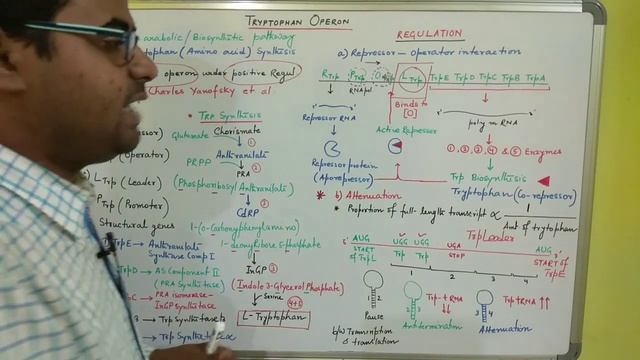 TRYPTOPHAN OPERON
anabolic/Biosynthetic pathway
tophan (Amino acid) Synthisis
operon under positive Regul
Charles Yanofsky et al
• TRP Synthisis
ressor)
(Operator)
LTrp (Leader)
PTrp (Promoter)
Structural genes
TrpE → Anthranilate Synthase Comp I
TrpD → AS Component II
(PRA Synthetase)
C → PRA isomerase-
InGP Synthitase
→ Trp Synthitase B
→ Trp Synthitase α
Glutamate Chorismate
①
Anthranilate
PRPP ②
PRA
(Phosphoribosyl Anthranilate)
②
CdRP
1-(o-Carboxyphenylamino)
1-deoxyRibose 5 phosphate
InGP ③
(Indole 3-Glycerol Phosphate)
Serine ④+⑤
L-Tryptophan
REGULATION
a) Repressor — operator interaction
RTrp PTrp OTrp LTrp TrpE TrpD TrpC TrpB TrpA
RNA pol
Binds to [O]
Repressor RNA
Active Repressor
poly m RNA
①, ②, ③, ④ & ⑤ Enzymes
Repressor protein
(Aporepressor)
Trp Biosynthesis
Tryptophan (Co-repressor)
* b) Attenuation
* Proportion of full-length transcript ∝ 1
Amt of tryptophan
TrpLeader
5' AUG UGG UGG UGA AUG 3'
START of TrpL Trp Trp STOP START of TrpE
1 2 3 4
Pause
b/w Transcription & translation
Trp-tRNA ↓↓
Antitermination
Trp tRNA ↑↑
Attenuation